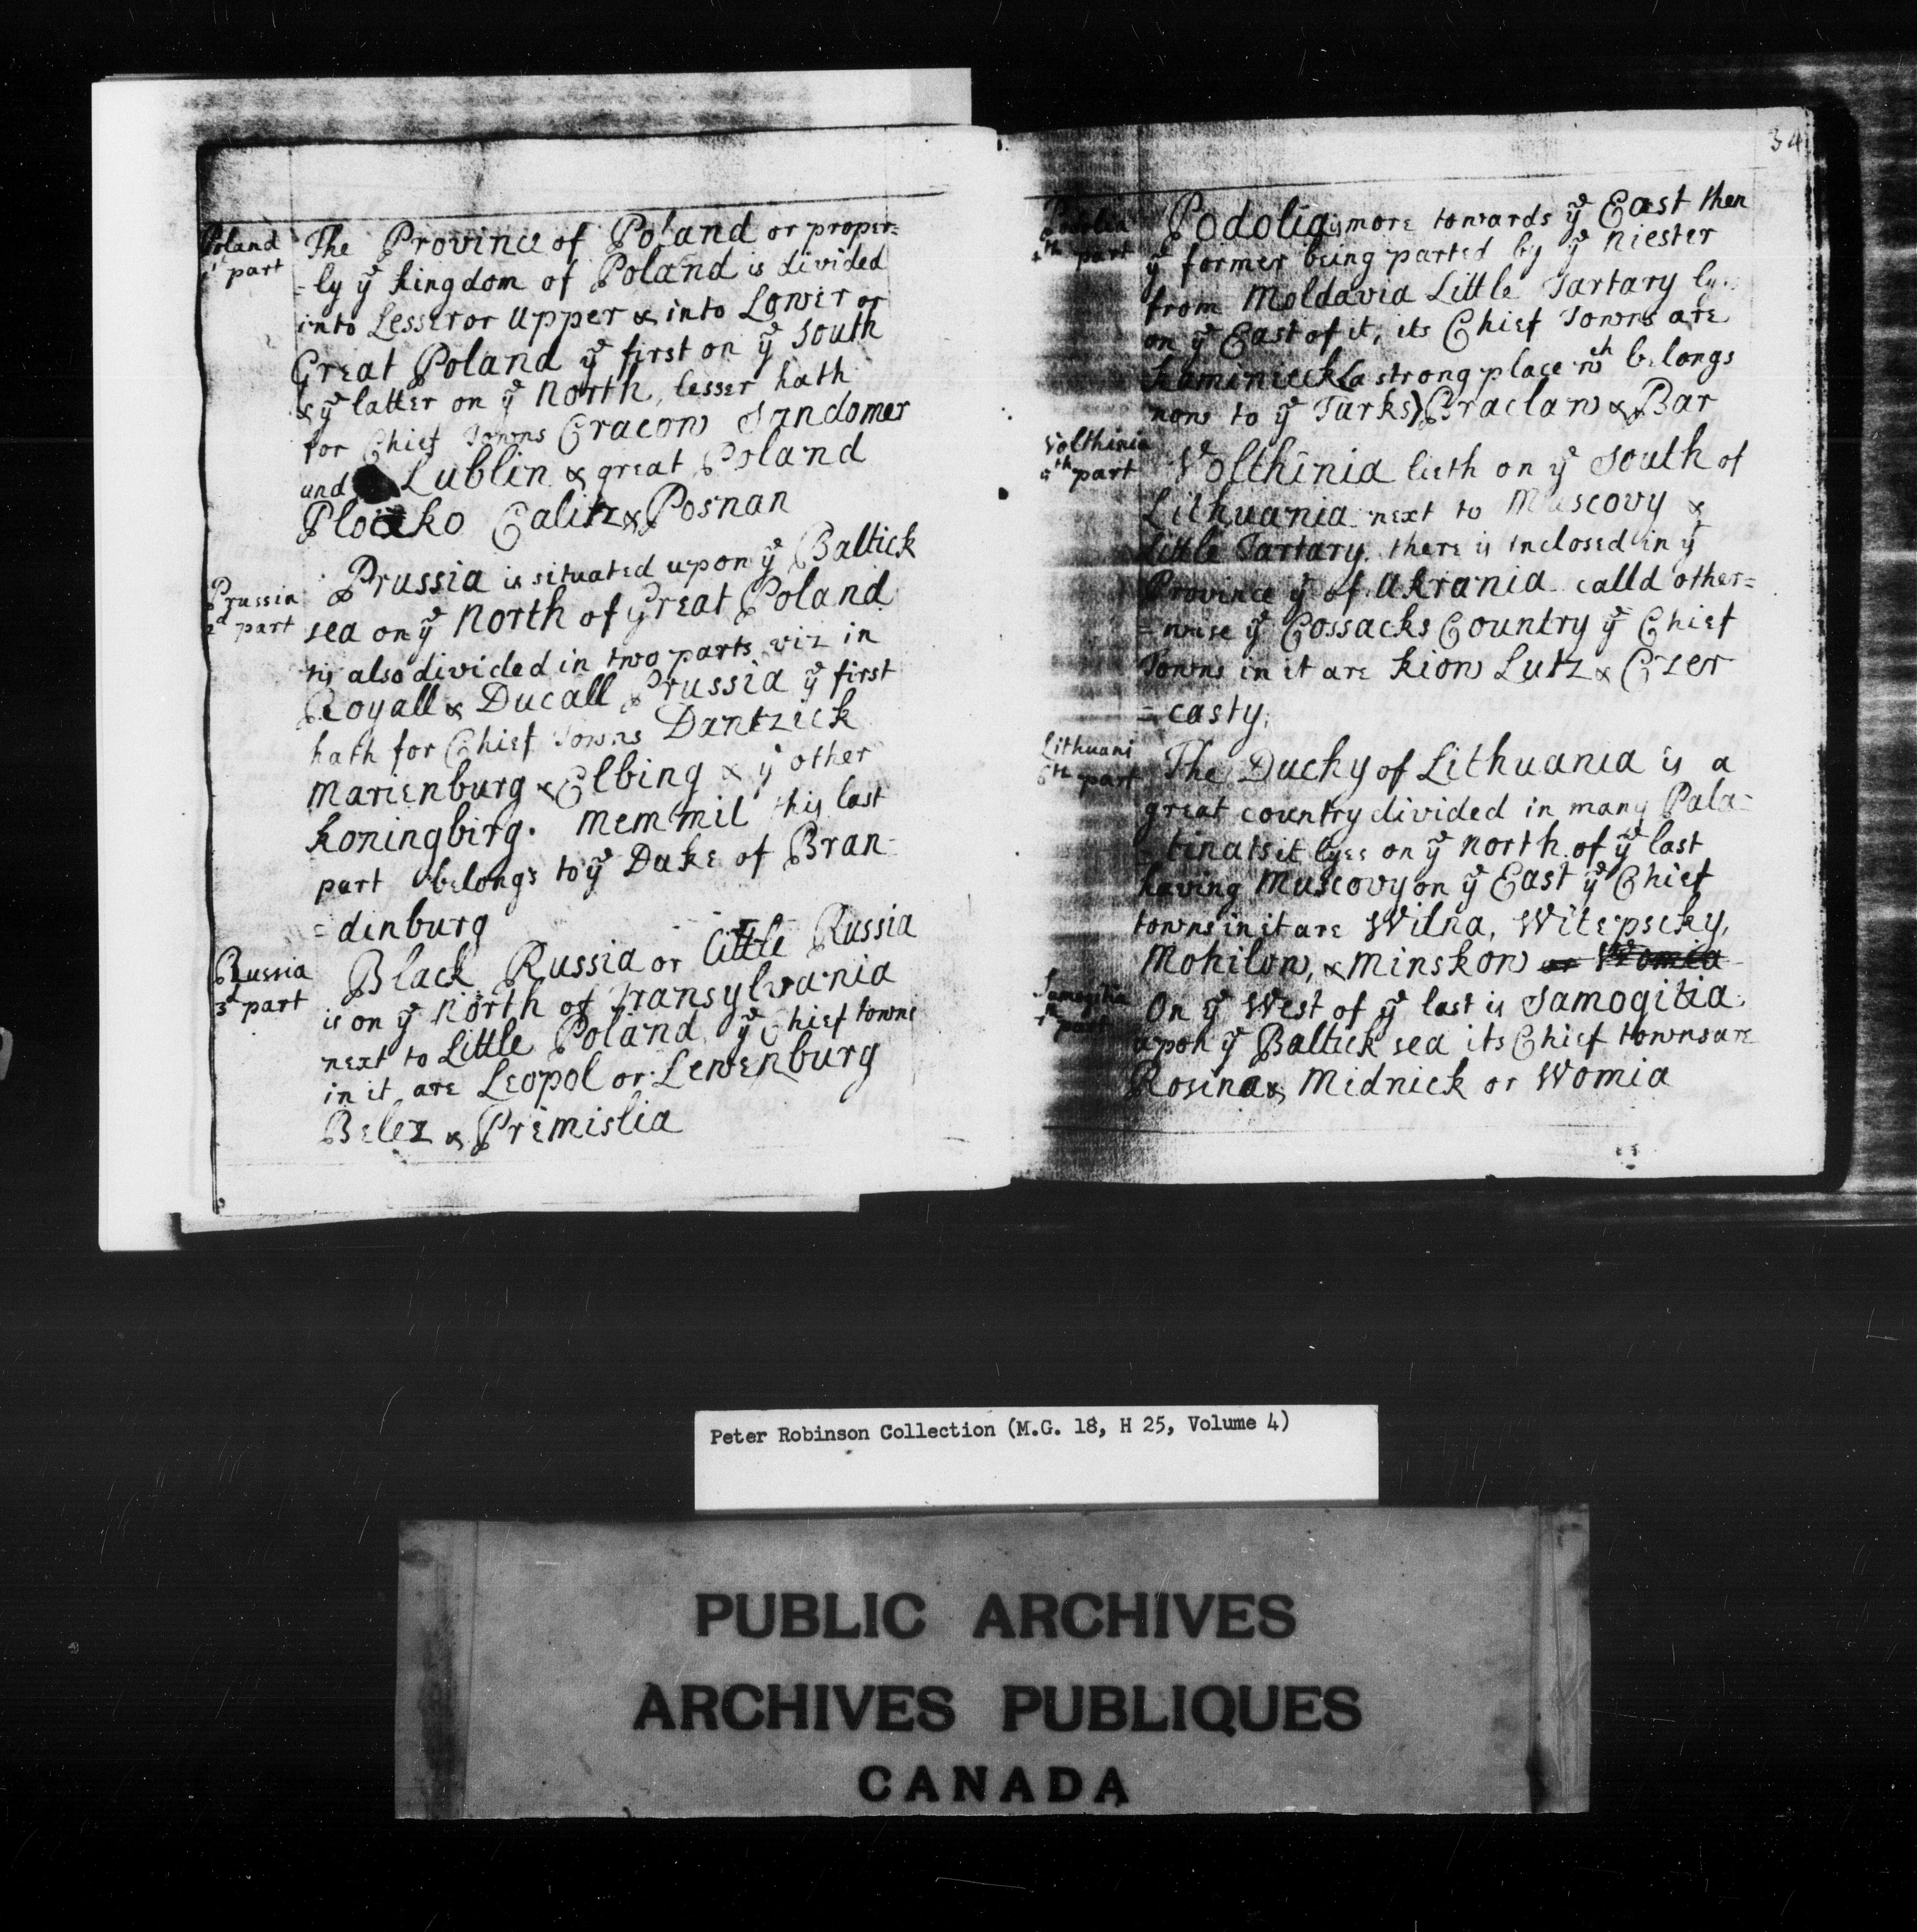 Poland
1st part
The Province of Poland or proper=
=ly ye kingdom of Poland is divided
into Lesser or Upper & into Lower or
Great Poland ye first on ye South
& ye latter on ye North, lesser hath
for Chief Towns Cracow Sandomer
and Lublin & great Poland
Ploczko Calitz & Posnan
Prussia
2d part
Prussia is situated upon ye Baltick
sea on ye North of Great Poland
tis also divided in two parts viz in
Royall & Ducall Prussia ye first
hath for Chief Towns Dantzick
Marienburg & Elbing & ye other
Koningbirg. Memmil this last
part belongs to ye Duke of Bran-
=dinburg
Russia
3d part
Black Russia or little Russia
is on ye North of Transylvania
next to Little Poland ye Chief towns
in it are Leopol or Lewenburg
Belez & Premislia
34
Podolia
4th part
Podolia is more towards ye East then
ye former being parted by ye Niester
from Moldavia Little Tartary lyes
on ye East of it, its Chief Towns are
Kaminieck (a strong place wch belongs
now to ye Turks) Braclaw & Bar
Volthinia
5th part
Volthinia lieth on ye South of
Lithuania next to Muscovy &
little Tartary. there is inclosed in ye
Province ye of Ukrania calld other=
=wise ye Cossacks Country ye Chief
Towns in it are Kiow Lutz & Czer
=casty.
Lithuani
6th part
The Duchy of Lithuania is a
great country divided in many Pala=
=tinats it lyes on ye North of ye last
having Muscovy on ye East ye Chief
towns in it are Wilna, Witepscky,
Mohilow, & Minskow or Womia
Samogitia
7th part
On ye West of ye last is Samogitia
upon ye Baltick sea its Chief towns are
Rosina & Midnick or Womia
Peter Robinson Collection (M.G. 18, H 25, Volume 4)
PUBLIC ARCHIVES
ARCHIVES PUBLIQUES
CANADA